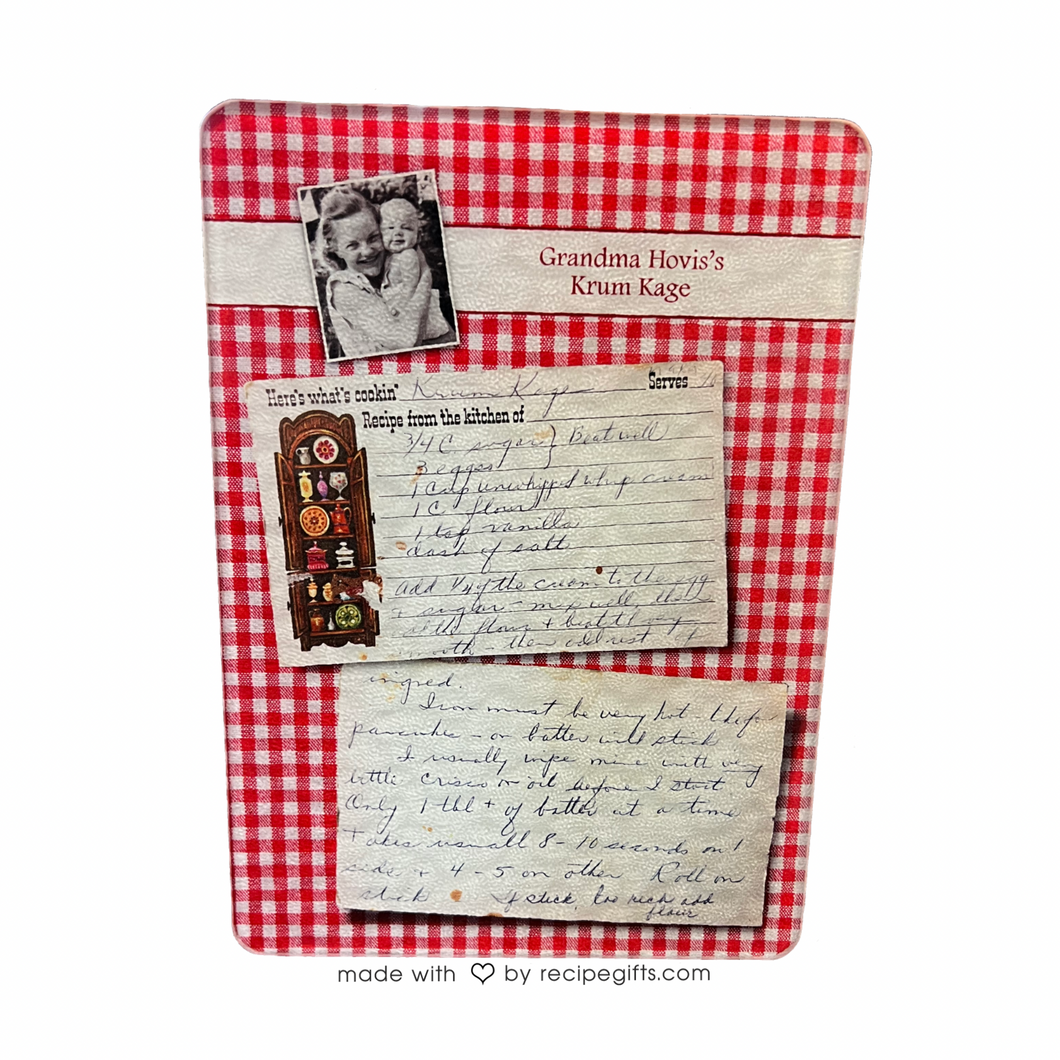 Grandma Hovis's
Krum Kage
Here's what's cookin' Krum Kage Serves
Recipe from the kitchen of
3/4 C sugar } Beat well
3 eggs
1 Cup unwhipped whip cream
1 C flour
1 tsp vanilla
dash of salt
add 1/4 of the cream to the egg
+ sugar - mix well, then
all the flour + beat very
smooth - then add rest of
ingred.
Iron must be very hot - like for
pancakes - or batter will stick
I usually wipe mine with very
little Crisco or oil before I start
Only 1 tbl + of batter at a time
takes usuall 8-10 seconds on 1
side + 4-5 on other Roll on
stick If stick, too rich add
flour
made with ♡ by recipegifts.com